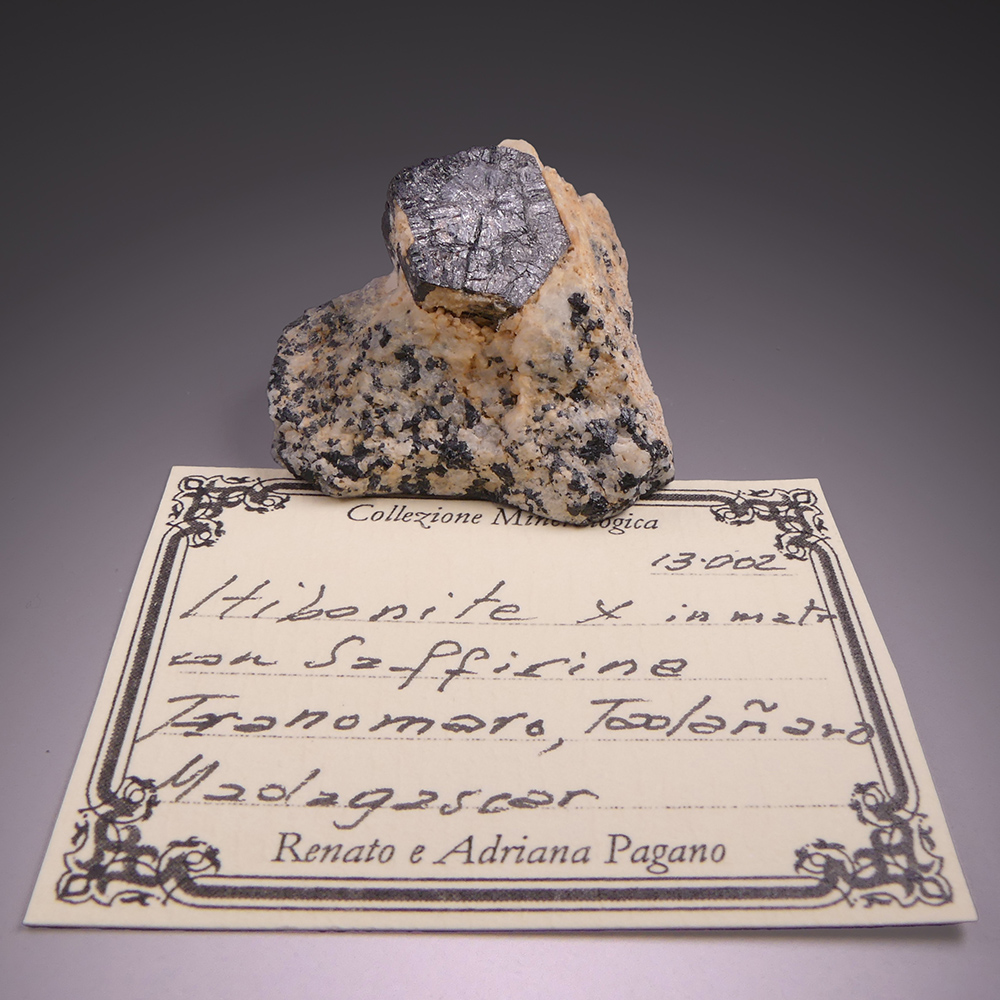 Collezione Mineralogica
13.002
Hibonite X in matr
con Saffirine
Tranomaro, Taolañaro
Madagascar
Renato e Adriana Pagano